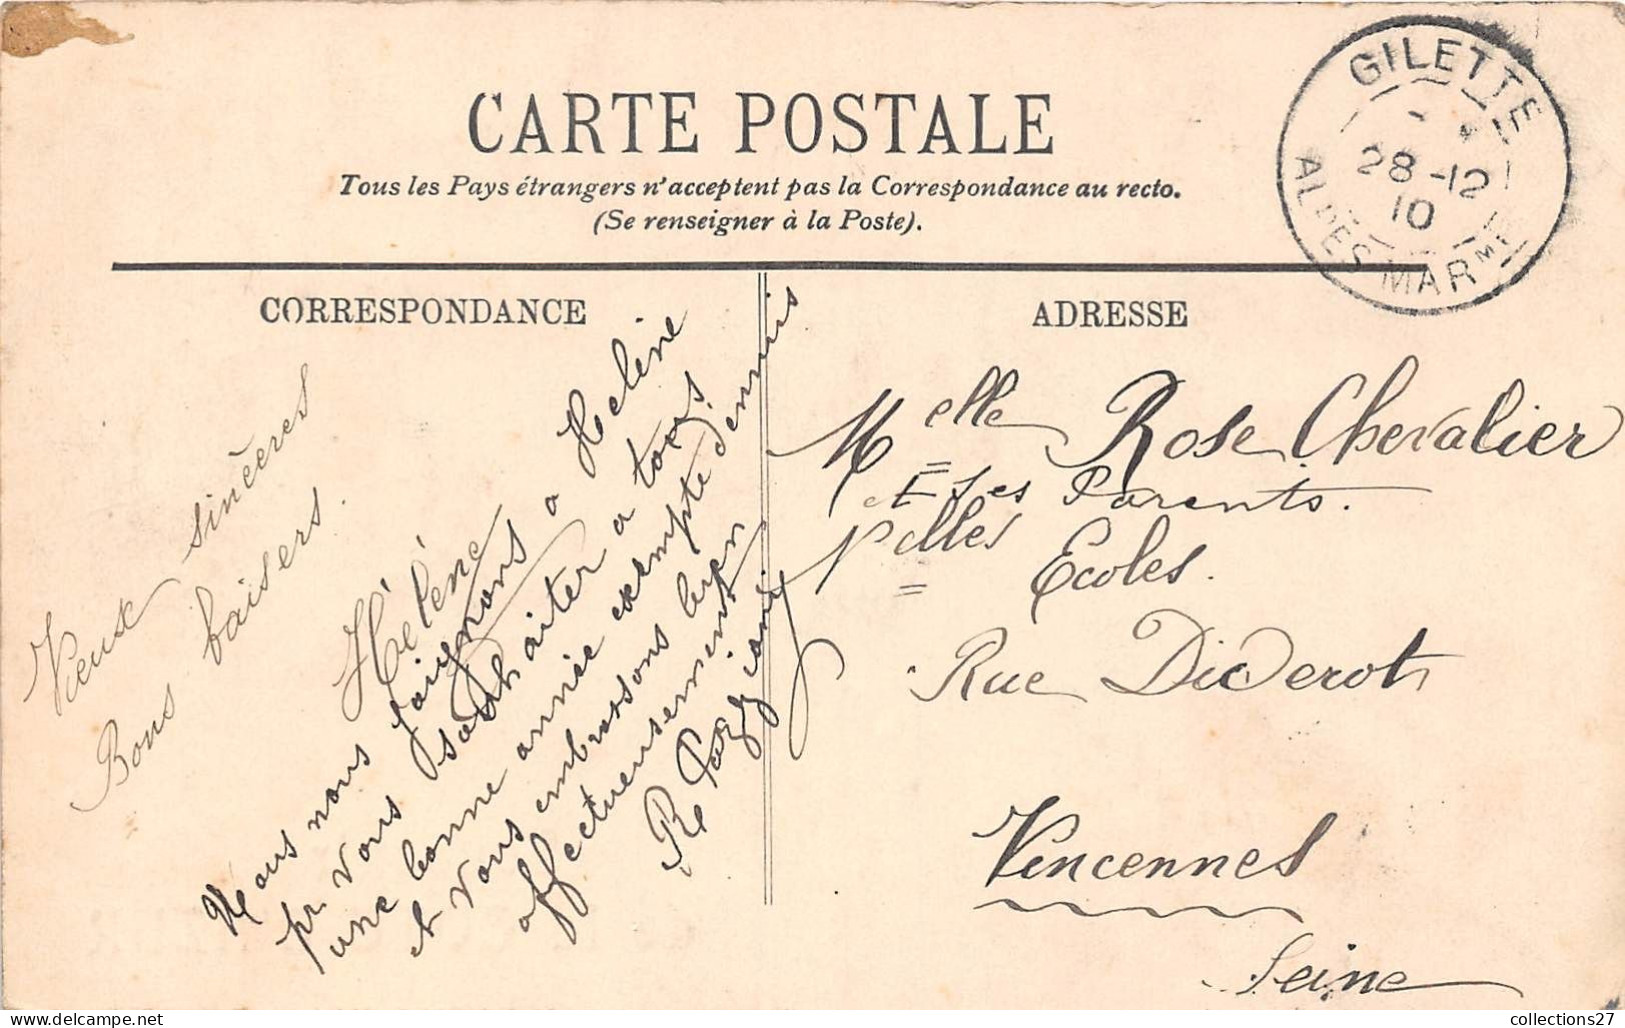 CARTE POSTALE
Tous les Pays étrangers n'acceptent pas la Correspondance au recto.
(Se renseigner à la Poste).
GILETTE
28-12
10
ALPES MARMES
CORRESPONDANCE
Vœux sincères
Bons baisers.
Hélène
Nous nous joignons a Helène
pr vous souhaiter a tous
une bonne année exempte d'ennuis
et vous embrassons bien
affectueusement
R Pazziani
ADRESSE
Melle Rose Chevalier
et ses Parents.
Nelles Ecoles.
Rue Diderot
Vincennes
Seine
collections27